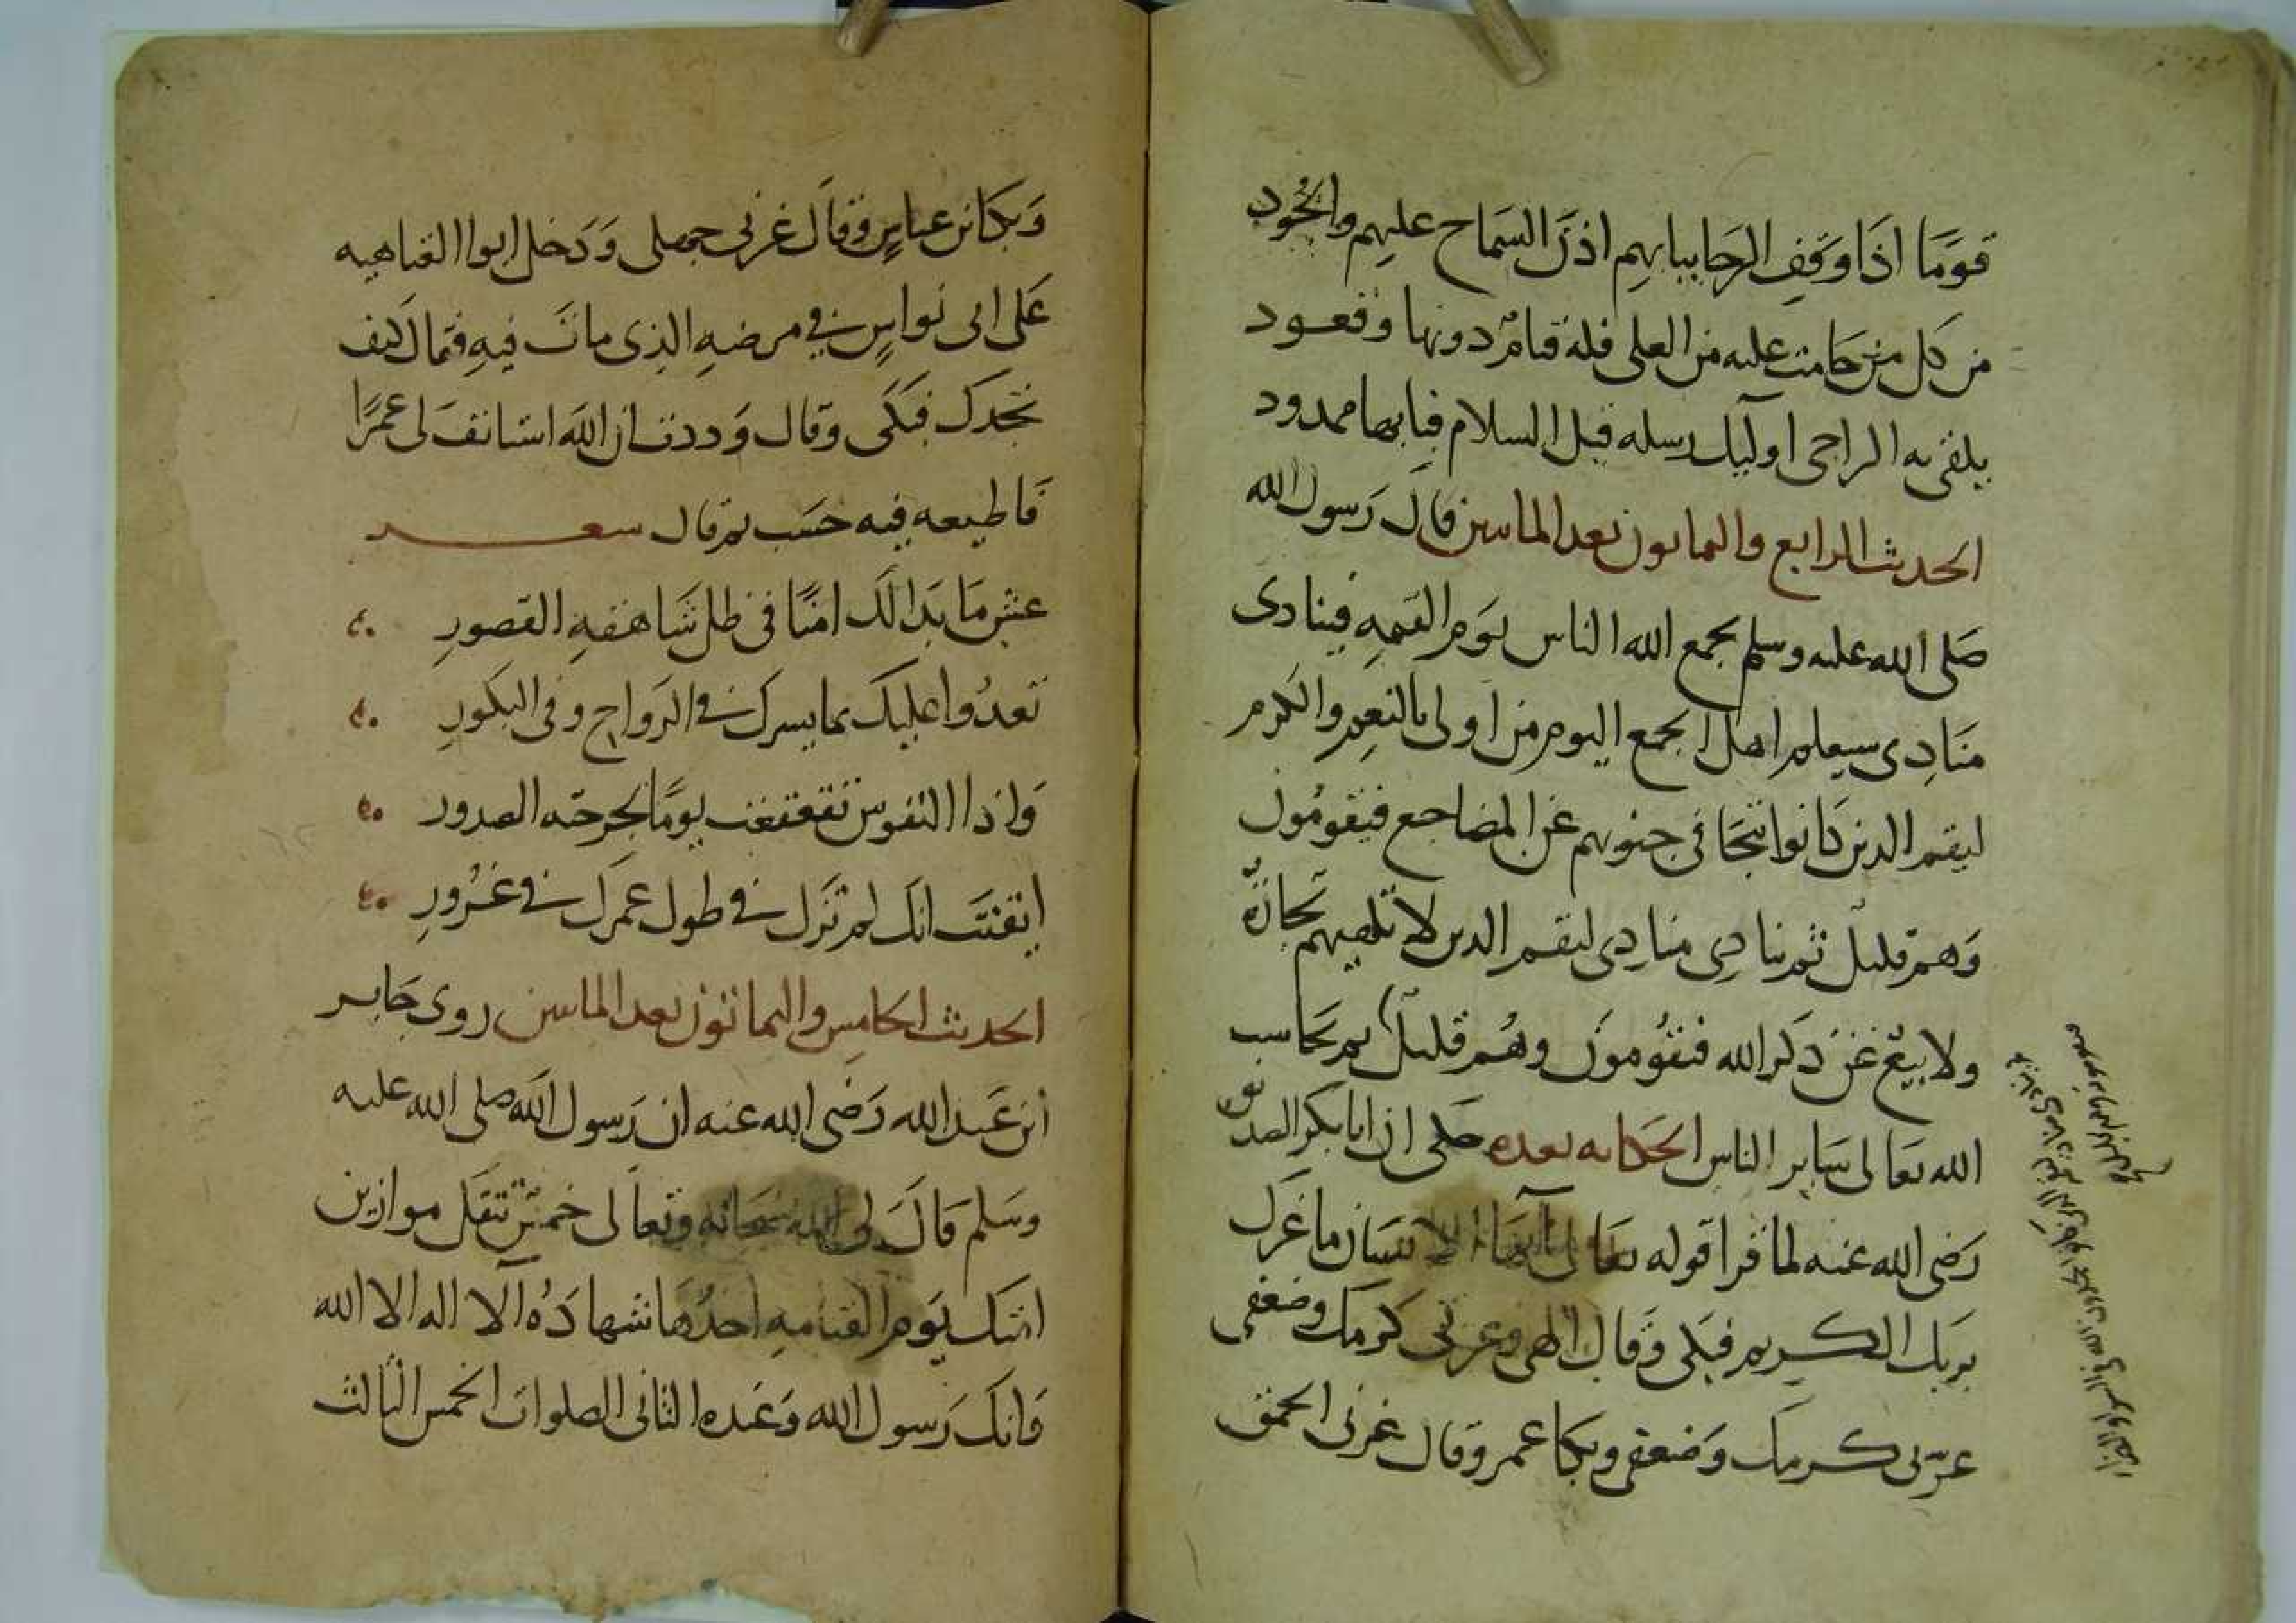 قومًا اذا وقف الرجا ببابهم اذن السماح عليهم والجود
من كل من حامت عليه من العلى فله قيام دونها وقعود
يلقى به الراجى اوليك رسله قبل السلام فبابها ممدود
الحديث الرابع والثمانون بعد الماسن قال رسول الله
صلى الله عليه وسلم يجمع الله الناس يوم القيمه فينادى
منادى سيعلم اهل الجمع اليوم من اولى بالنعم والكرم
ليقم الدين كانوا تتجافى جنوبهم عن المضاجع فيقومون
وهم قليل ثم ينادى منادى ليقم الدين لا تلهيهم تجارة
ولا بيع عن ذكر الله فيقومون وهم قليل ثم يحاسب
الله تعالى ساير الناس الحكايه بعده حكى ان ابا بكر الصديق
رضى الله عنه لما قرا قوله تعالى يا ايها الانسان ما غرك
بربك الكريم فبكى وقال الهى وعزتى كرمك وضعفى
غرنى كرمك وضعفى وبكا عمر وقال غرنى الحمق
ثم ينادى مناد ليقم الذين كانوا يحمدون الله في السرا والضرا
فيقومون وهم قليل
وبكا ابن عباس وقال غرنى جهلى ودخل ابوا العتاهيه
على ابى نواس في مرضه الذى مات فيه فقال كيف
تجدك فبكى وقال وددت ان الله استانف لى عمرًا
فاطيعه فيه حسب ثم قال سعـــر
عش ما بدا لك امنًا فى ظل شاهقه القصور
تعدُوا عليك بما يسرك في الرواح وفى البكور
واذا النفوس تقعقعت يومًا بحرجه الصدور
ايقنت انك لم تزل في طول عمرك في غرور
الحديث الخامس والثمانون بعد الماسن روى جابر
ابن عبد الله رضى الله عنه ان رسول الله صلى الله عليه
وسلم قال لى الله سبحانه وتعالى خمس تثقل موازين
امتك يوم القيامه احدها شهادة ألا اله الا الله
وانك رسول الله وعبده الثانى الصلوات الخمس الثالث